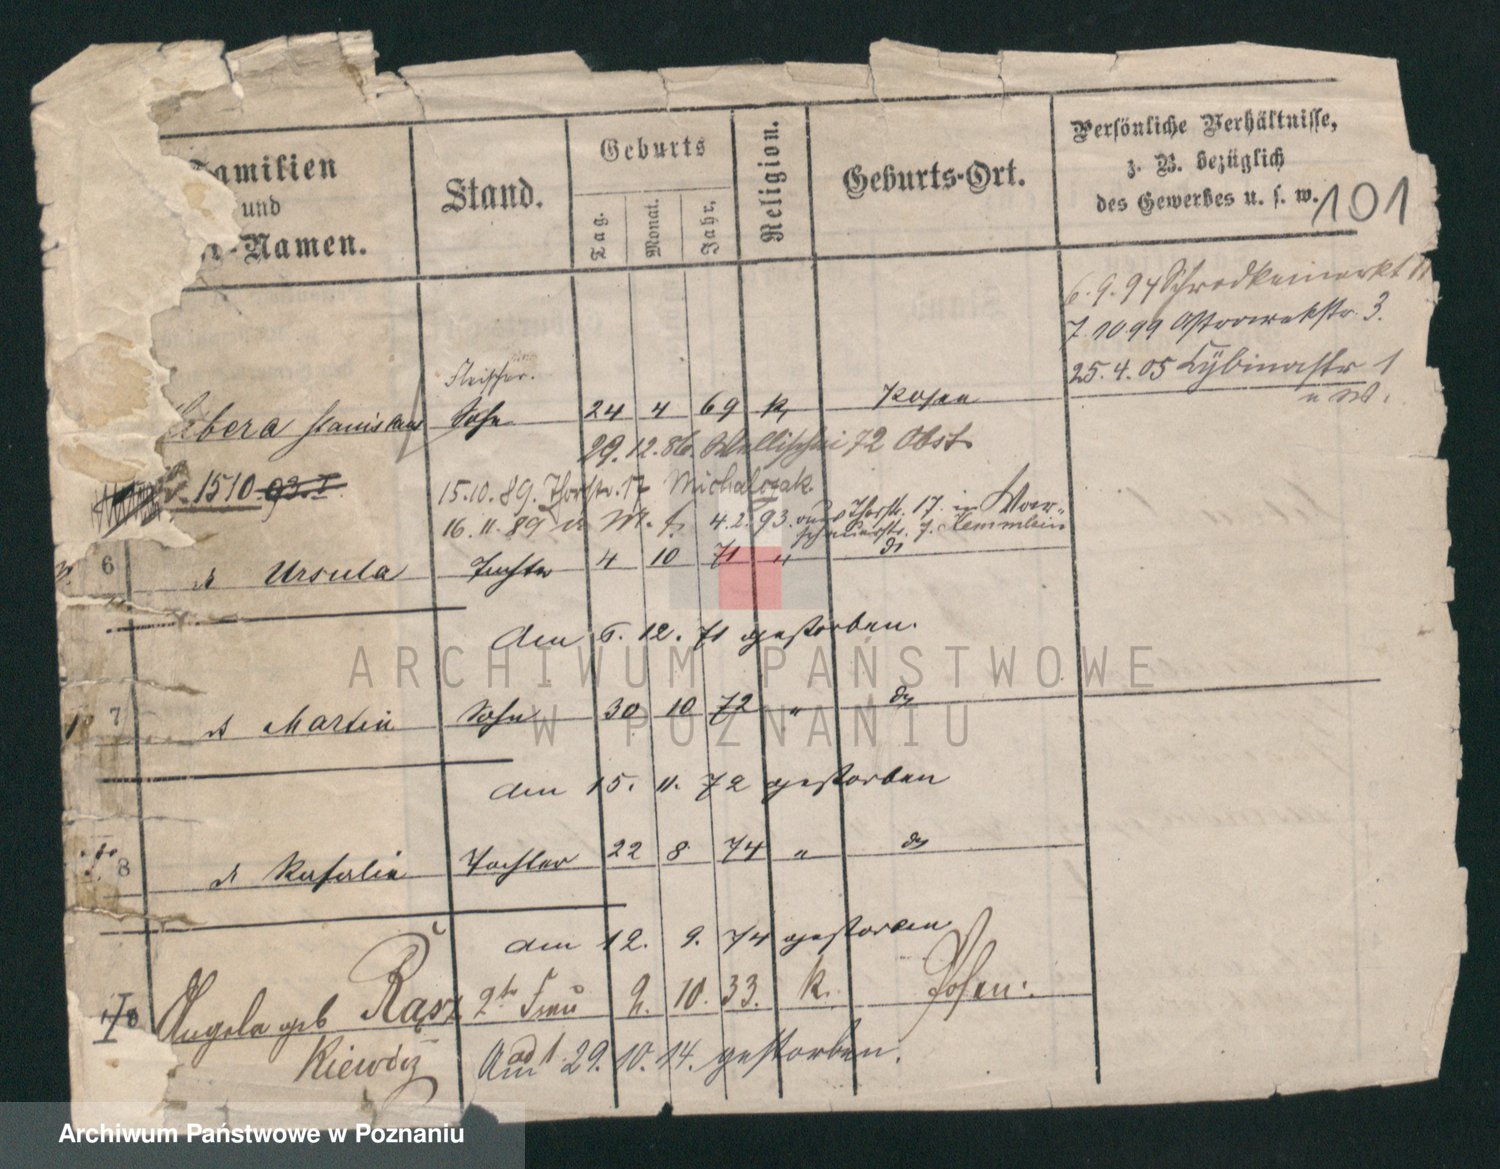 Familien
und
-Namen.
Stand.
Geburts
Tag.
Monat.
Jahr.
Religion.
Geburts-Ort.
Persönliche Verhältnisse,
z. B. bezüglich
des Gewerbes u. s. w.
101
6.9.94 Schrodkamarkt
7.10.99 Ostrowekstr. 3.
25.4.05 Cybinastr 1
Fleischer.
Stanislaus Sohn 24 4 69 k. Posen
29.12.86. Wallischei 72 Obst
1510 93.I.
15.10.89. Thorstr. 17 Michalczak.
16.11.89 4.2.93. Thorstr. 17. in War-
schauerstr. 7.
6 d Ursula Tochter 4 10 71 " do
den 6. 12. 71 gestorben.
7 d Martin Sohn 30 10 72 " do
den 15. 11. 72 gestorben
8 d Rosalie Tochter 22 8 74 " do
den 12. 9. 74 gestorben
Angela geb Rasz 2te Frau 2. 10. 33. k. Posen.
Kiewicz
ad 1. Am 29. 10. 14. gestorben.
ARCHIWUM PAŃSTWOWE
W POZNANIU
Archiwum Państwowe w Poznaniu